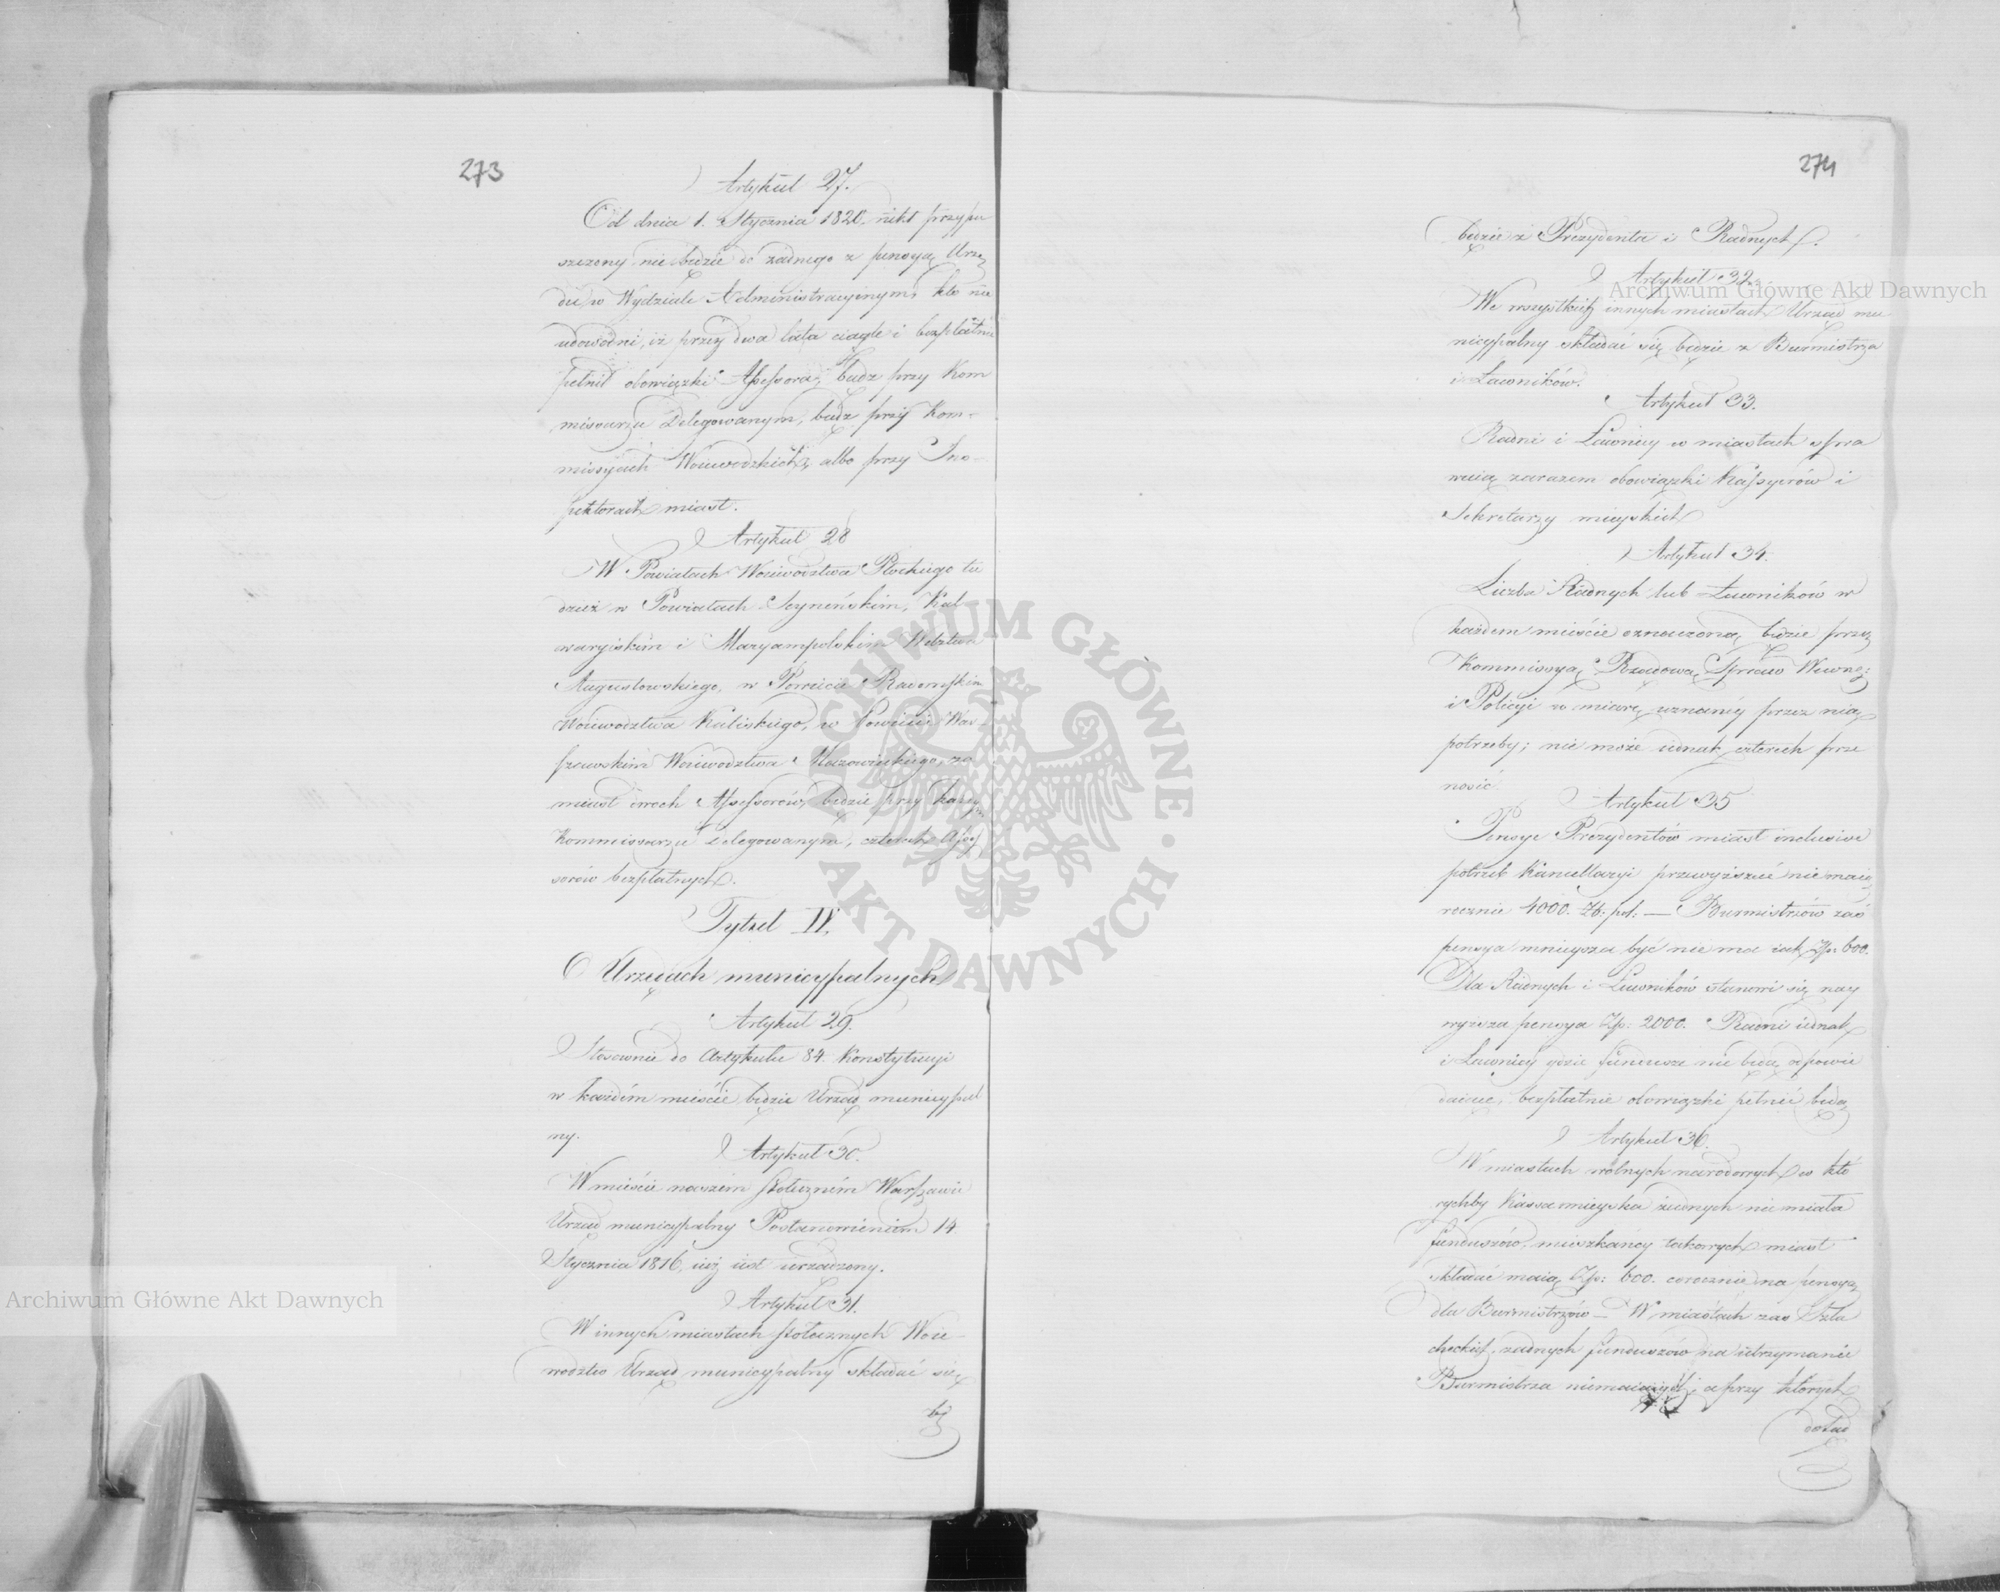 273
Artykuł 27.
Od dnia 1. Stycznia 1820. nikt przypu
szczony nie będzie do żadnego z pensyą Urzę
du w Wydziale Administracyinym, kto nie
udowodni, iż przez dwa lata ciągle i bezpłatnie
pełnił obowiązki Assessora, bądź przy Kom
missarzu Delegowanym, bądź przy Kom-
missyach Woiewodzkich, albo przy Ins-
pektorach miast.
Artykuł 28
W Powiatach Woiewodztwa Płockiego tu
dzież w Powiatach Seyneńskim, Kal
waryiskim i Maryampolskim Wdztwa
Augustowskiego, w Powiecie Radomskim
Woiewodztwa Kaliskiego, w Powiecie War-
szawskim Woiewodztwa Mazowieckiego, za
miast dwóch Assessorów, będzie przy każdym
Kommissarzu Delegowanym, czterech Asses
sorów bezpłatnych.
Tytuł IV.
O Urzędach municypalnych
Artykuł 29.
Stosownie do Artykułu 84. Konstytucyi
w każdém mieście będzie Urząd municypal
ny.
Artykuł 30.
W mieście naszém stołeczném Warszawie
Urząd municypalny Postanowieniem 14
Stycznia 1816, iuż iest urządzony.
Artykuł 31.
W innych miastach stołecznych Woie-
wodztw Urząd municypalny składać się
bę
274
będzie z Prezydenta i Radnych.
Artykuł 32.
We wszystkich innych miastach Urząd mu
nicypalny składać się będzie z Burmistrza
i Ławników.
Artykuł 33.
Radni i Ławnicy w miastach spra
wuią zarazem obowiązki Kassyerów i
Sekretarzy mieyskich
Artykuł 34.
Liczba Radnych lub Ławników w
każdem mieście oznaczoną będzie przez
Kommissyą Rządową Spraw Wewnę:
i Policyi w miarę uznaney przez nią
potrzeby; nie może iednak czterech prze
nosić.
Artykuł 35
Pensye Prezydentów miast inclusive
potrzeb Kancellaryi przewyższać nie maią
rocznie 4000. Zł: pol: — Burmistrzów zaś
pensya mnieysza być nie ma iak Zp: 600.
Dla Radnych i Ławników stanowi się nay
wyższa pensya Zp: 2000. Radni iednak
i Ławnicy gdzie fundusze nie będą odpowie
daiące, bezpłatnie obowiązki pełnić będą
Artykuł 36.
W miastach wolnych narodowych w któ
rychby Kassa mieyska żadnych nie miała
funduszów, mieszkańcy takowych miast
składać maią Zp: 600. corocznie na pensyą
dla Burmistrzów — W miastach zaś Szla
checkich, żadnych funduszów na utrzymanie
Burmistrza niemaiących, a przy których
dotąd
Archiwum Główne Akt Dawnych
Archiwum Główne Akt Dawnych
ARCHIWUM GŁÓWNE • AKT DAWNYCH •